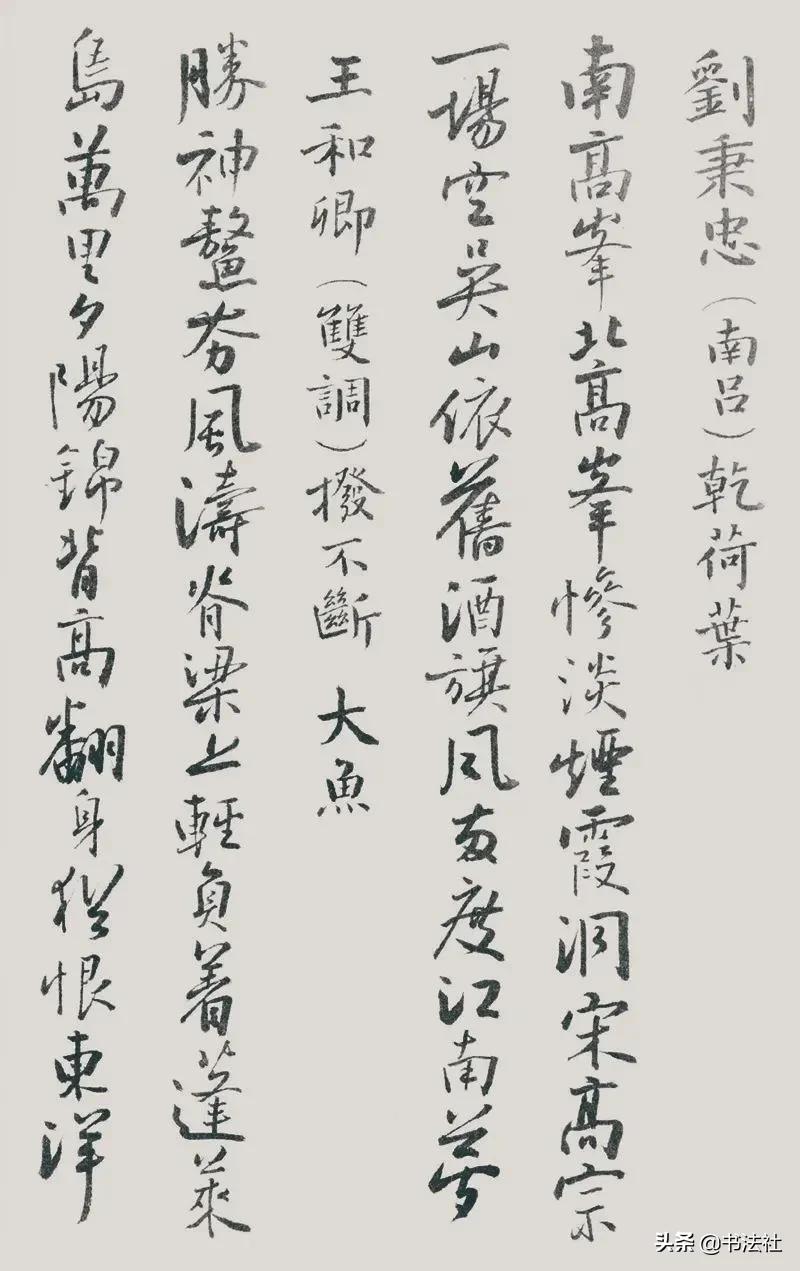 劉秉忠（南呂）乾荷葉
南高峯北高峯慘淡煙霞洞宋高宗
一場空吳山依舊酒旗風兩度江南夢
王和卿（雙調）撥不斷 大魚
勝神鰲夯風濤脊梁上輕負着蓬萊
島萬里夕陽錦背高翻身猶恨東洋
头条 @书法社